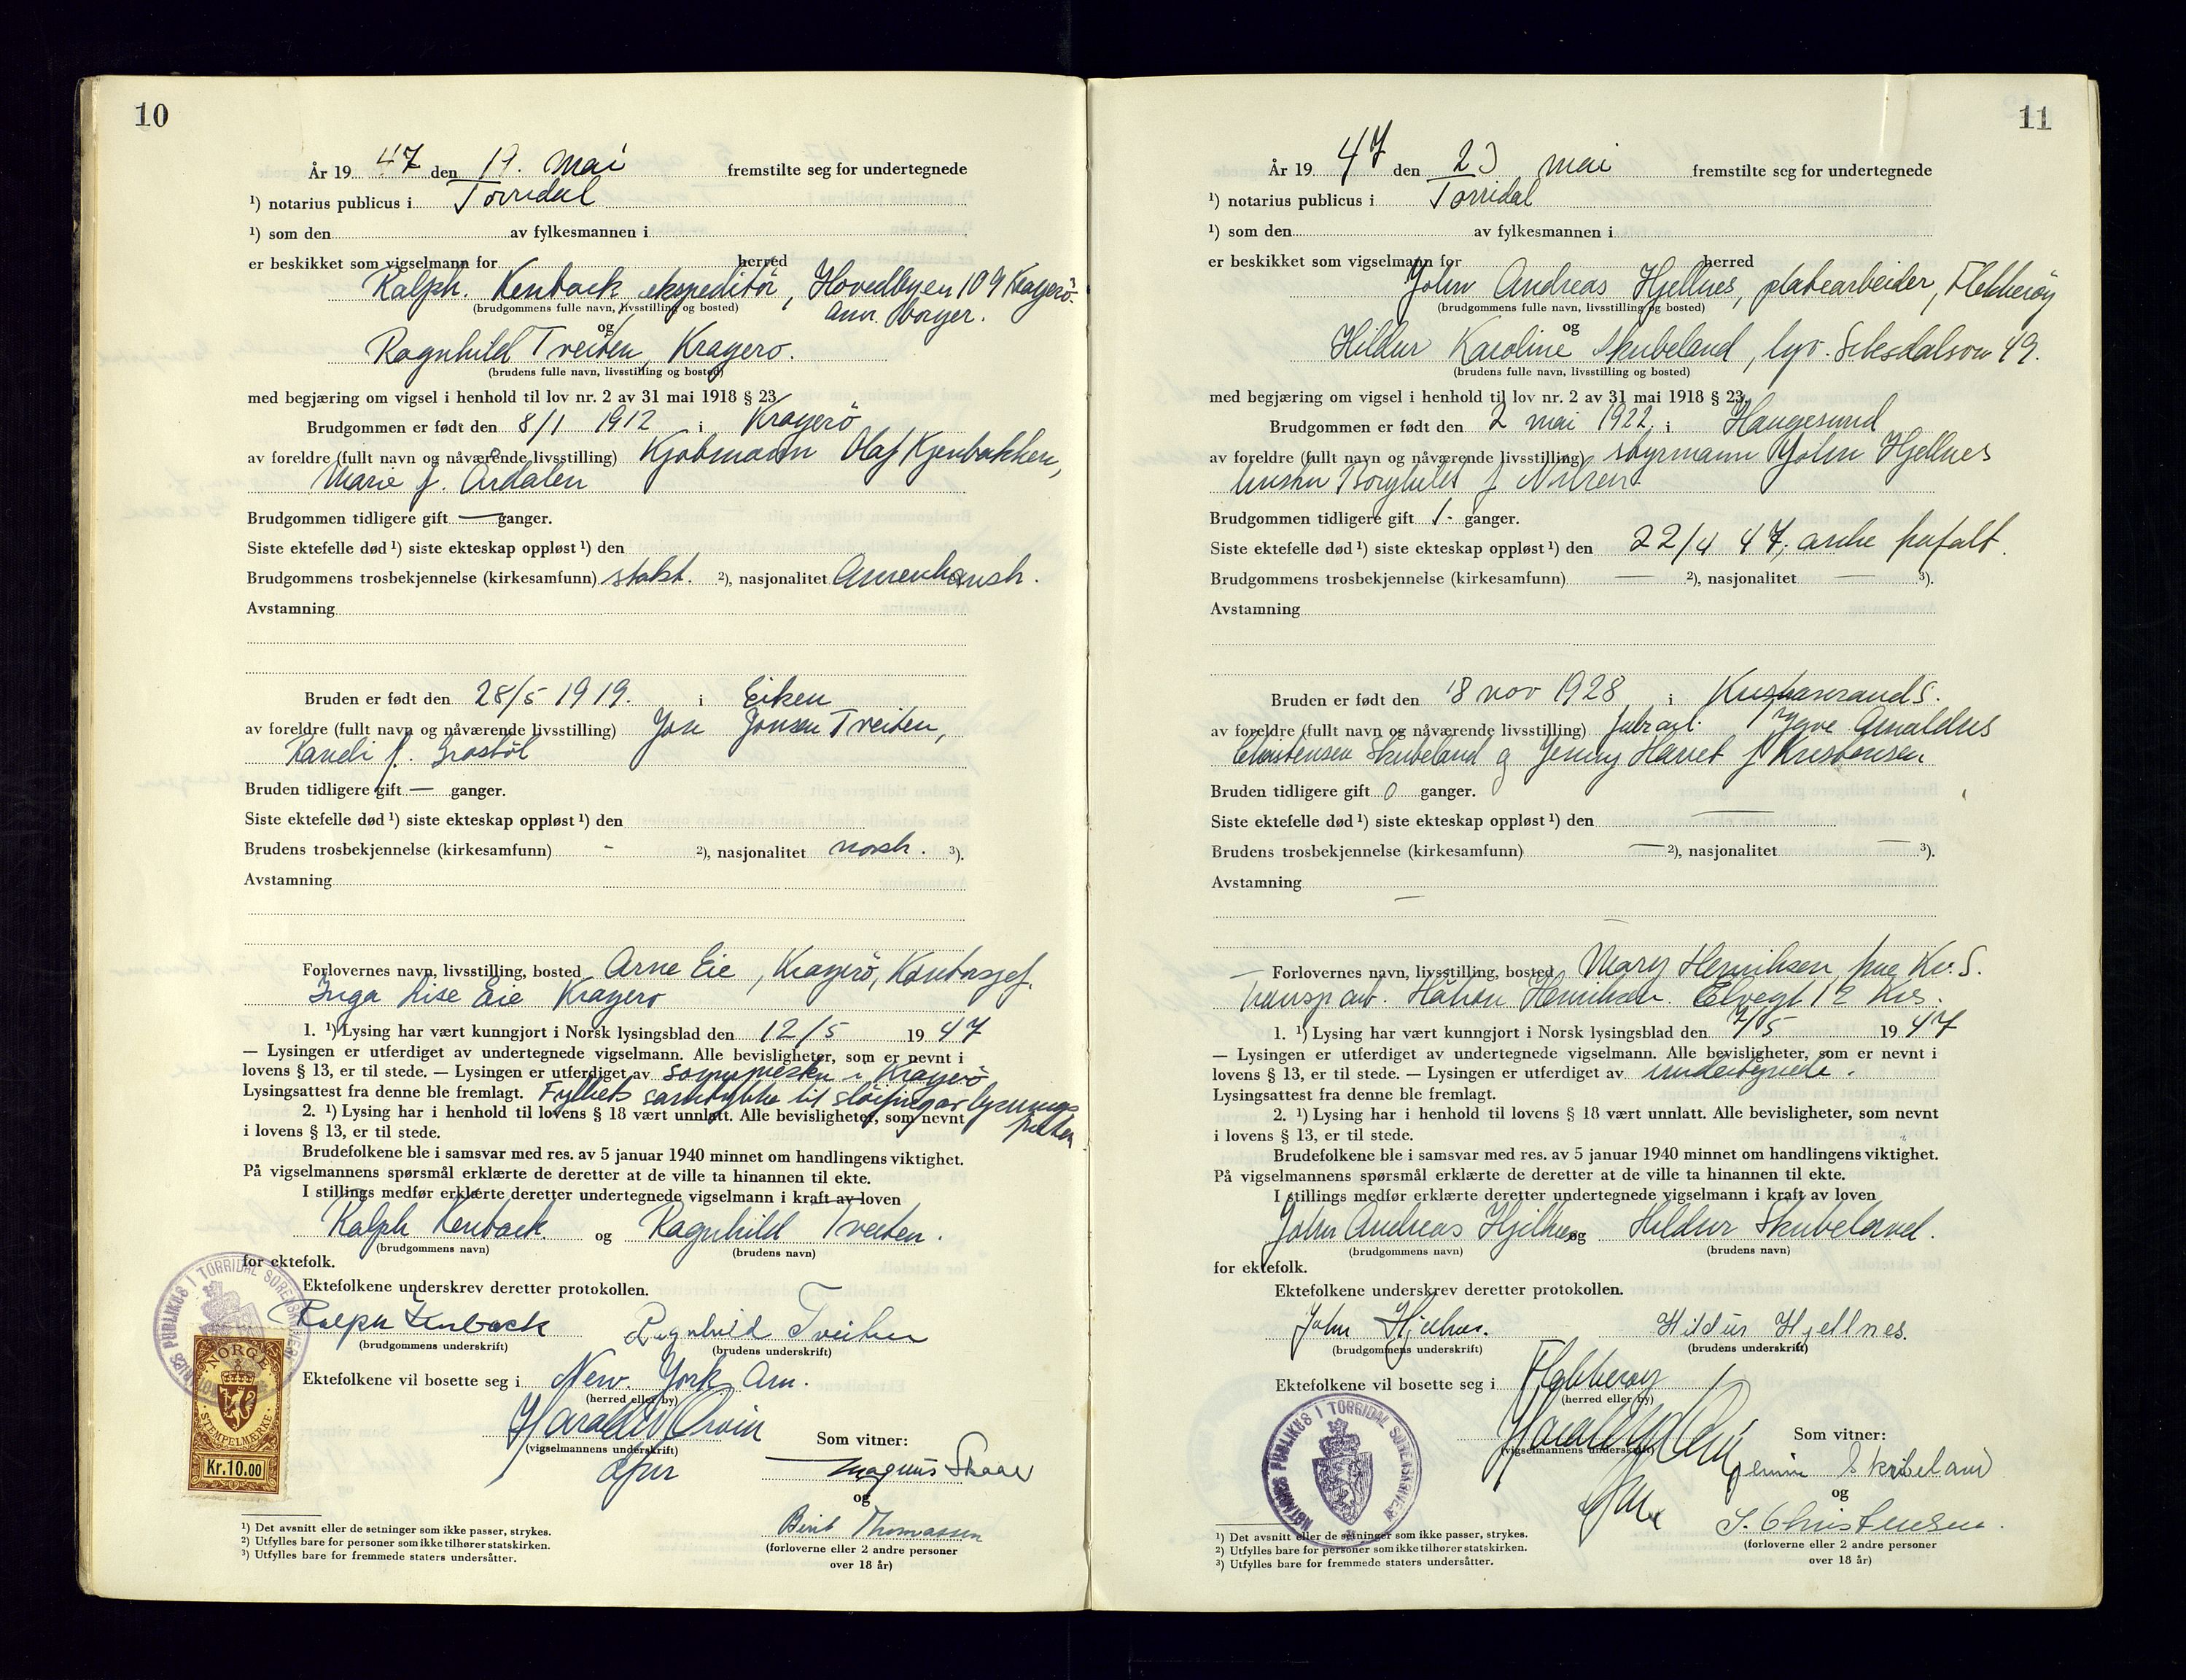 10
År 19 47 den 19. mai fremstilte seg for undertegnede
¹) notarius publicus i Torridal
¹) som den av fylkesmannen i
er beskikket som vigselmann for herred
Ralph. Kenback ekspeditör, Hovedbyen 109 Kragerö.
(brudgommens fulle navn, livsstilling og bosted)
Am. borger.
og
Ragnhild Tveiten, Kragerö.
(brudens fulle navn, livsstilling og bosted)
med begjæring om vigsel i henhold til lov nr. 2 av 31 mai 1918 § 23
Brudgommen er født den 8/1 1912 i Kragerö
av foreldre (fullt navn og nåværende livsstilling) Kjøbmann Olaf Kjenbakken,
Marie f. Årdalen
Brudgommen tidligere gift — ganger.
Siste ektefelle død ¹) siste ekteskap oppløst ¹) den
Brudgommens trosbekjennelse (kirkesamfunn) statsk. ²), nasjonalitet Amerikansk.
Avstamning
Bruden er født den 28/5 1919. i Eiken
av foreldre (fullt navn og nåværende livsstilling) Jon Jonsen Tveiten,
f. Grostöl
Bruden tidligere gift — ganger.
Siste ektefelle død ¹) siste ekteskap oppløst ¹) den
Brudens trosbekjennelse (kirkesamfunn) - ²), nasjonalitet norsk. ³).
Avstamning
Forlovernes navn, livsstilling, bosted Arne Eie, Kragerö, Kontorsjef.
Inga Lise Eie Kragerö
1. ¹) Lysing har vært kunngjort i Norsk lysingsblad den 12/5 19 47
— Lysingen er utferdiget av undertegnede vigselmann. Alle bevisligheter, som er nevnt i
lovens § 13, er til stede. — Lysingen er utferdiget av sognepresten i Kragerö
Lysingsattest fra denne ble fremlagt. Fylkets samtykke til sløifing av lysnings
2. ¹) Lysing har i henhold til lovens § 18 vært unnlatt. Alle bevisligheter, som nevnt
i lovens § 13, er til stede.
Brudefolkene ble i samsvar med res. av 5 januar 1940 minnet om handlingens viktighet.
På vigselmannens spørsmål erklærte de deretter at de ville ta hinannen til ekte.
I stillings medfør erklærte deretter undertegnede vigselmann i kraft av loven
Ralph Kenback. og Ragnhild Tveiten.
(brudgommens navn) (brudens navn)
for ektefolk.
Ektefolkene underskrev deretter protokollen.
Ralph Kenback Ragnhild Tveiten
(brudgommens underskrift) (brudens underskrift)
Ektefolkene vil bosette seg i New. York Am.
(herred eller by)
(vigselmannens underskrift)
Som vitner:
Magnus Skaar
og
Berit Thomassen
(forloverne eller 2 andre personer
over 18 år)
NOTARIUS PUBLIKUS I TORRIDAL SORENSKRIVERI
NORGE
STEMPELMERKE
Kr.10.00
¹) Det avsnitt eller de setninger som ikke passer, strykes.
²) Utfylles bare for personer som ikke tilhører statskirken.
³) Utfylles bare for fremmede staters undersåtter.
11
År 19 47 den 23 mai fremstilte seg for undertegnede
¹) notarius publicus i Torridal
¹) som den av fylkesmannen i
er beskikket som vigselmann for herred
John Andreas Hjellnes, platearbeider, Flekkerøy
(brudgommens fulle navn, livsstilling og bosted)
og
Hildur Karoline Skubeland, 49.
(brudens fulle navn, livsstilling og bosted)
med begjæring om vigsel i henhold til lov nr. 2 av 31 mai 1918 § 23,
Brudgommen er født den 2 mai 1922. i Haugesund
av foreldre (fullt navn og nåværende livsstilling) styrmann John Hjellnes
hustru Borghild f Nilsen.
Brudgommen tidligere gift 1. ganger.
Siste ektefelle død ¹) siste ekteskap oppløst ¹) den 22/4 47.
Brudgommens trosbekjennelse (kirkesamfunn) — ²), nasjonalitet — ³).
Avstamning
Bruden er født den 18 nov 1928 i Kristiansand S.
av foreldre (fullt navn og nåværende livsstilling) fabr.arb. Yngve Arnaldus
Christensen Skubeland og Jenny Harriet f Kristensen
Bruden tidligere gift 0 ganger.
Siste ektefelle død ¹) siste ekteskap oppløst ¹) den —
Brudens trosbekjennelse (kirkesamfunn) — ²), nasjonalitet — ³).
Avstamning
Forlovernes navn, livsstilling, bosted Mary Henriksen, frue Kr. S.
Transp arb. Håkon Henriksen. Elvegt 12 Krs.
1. ¹) Lysing har vært kunngjort i Norsk lysingsblad den 7/5 19 47
— Lysingen er utferdiget av undertegnede vigselmann. Alle bevisligheter, som er nevnt i
lovens § 13, er til stede. — Lysingen er utferdiget av undertegnede.
Lysingsattest fra denne ble fremlagt.
2. ¹) Lysing har i henhold til lovens § 18 vært unnlatt. Alle bevisligheter, som nevnt
i lovens § 13, er til stede.
Brudefolkene ble i samsvar med res. av 5 januar 1940 minnet om handlingens viktighet.
På vigselmannens spørsmål erklærte de deretter at de ville ta hinannen til ekte.
I stillings medfør erklærte deretter undertegnede vigselmann i kraft av loven
John Andreas Hjellnes og Hildur Skubeland.
(brudgommens navn) (brudens navn)
for ektefolk.
Ektefolkene underskrev deretter protokollen.
John Hjellnes. Hildur Hjellnes.
(brudgommens underskrift) (brudens underskrift)
Ektefolkene vil bosette seg i Flekkerøy
(herred eller by)
(vigselmannens underskrift)
Som vitner:
Jenni Skubeland
og
S. Christensen
(forloverne eller 2 andre personer
over 18 år)
NOTARIUS PUBLIKUS I TORRIDAL SORENSKRIVERI
¹) Det avsnitt eller de setninger som ikke passer, strykes.
²) Utfylles bare for personer som ikke tilhører statskirken.
³) Utfylles bare for fremmede staters undersåtter.